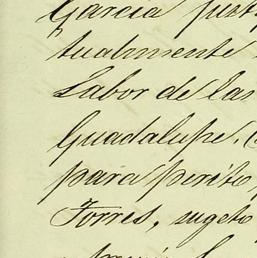 García just
tualmente
Labor de las
Guadalupe. (
para perito,
Torres, sugeto